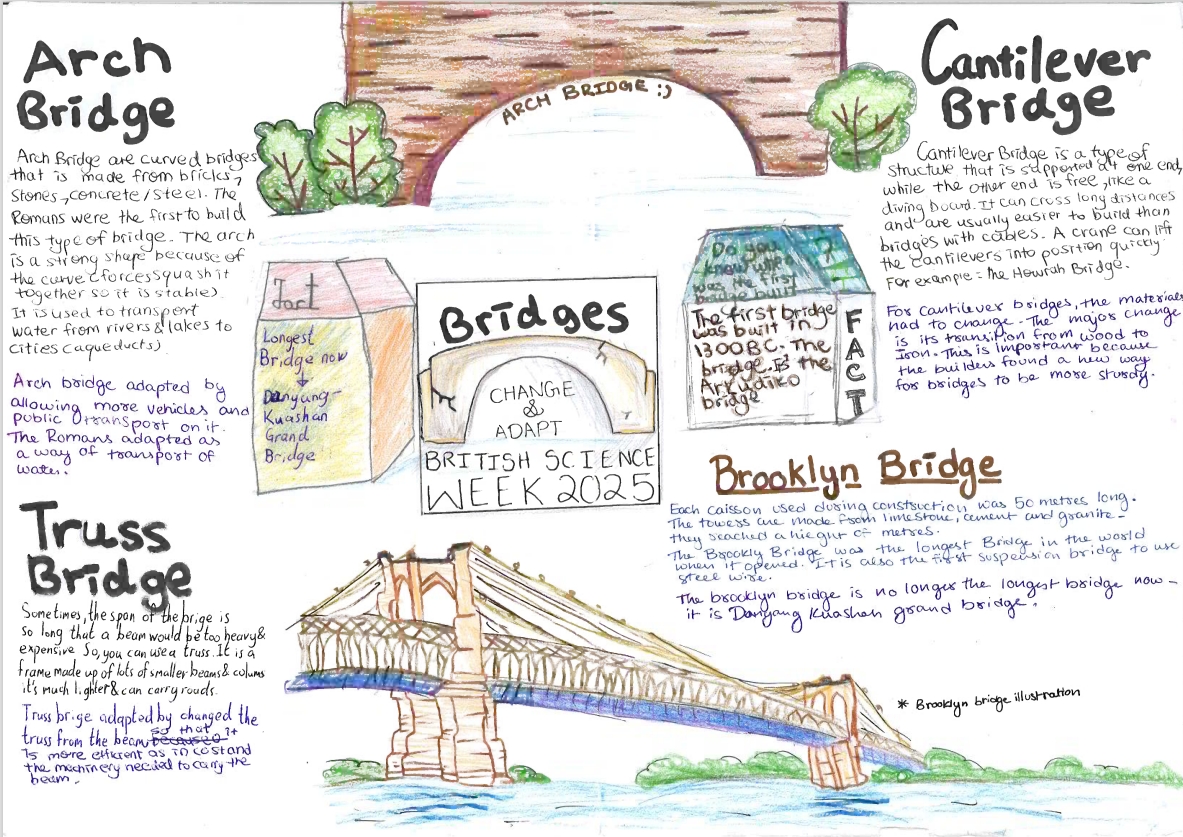 Arch
Bridge
Arch Bridge are curved bridges
that is made from bricks,
stones, concrete/steel. The
Romans were the first to build
this type of bridge. The arch
is a strong shape because of
the curve (forces squash it
together so it is stable)
It is used to transport
water from rivers & lakes to
cities (aqueducts)
Arch bridge adapted by
allowing more vehicles and
public transport on it.
The Romans adapted as
a way of transport of
water.
Truss
Bridge
Sometimes, the span of the brige is
so long that a beam would be too heavy &
expensive So, you can use a truss. It is a
frame made up of lots of smaller beams & colums
it's much lighter & can carry roads.
Truss brige adapted by changed the
truss from the beam so that it
is more efficient as in cost and
the machinery needed to carry the
beam.
ARCH BRIDGE :)
Fact
Longest
Bridge now
Danyang-
Kuashan
Grand
Bridge
Bridges
CHANGE
&
ADAPT
BRITISH SCIENCE
WEEK 2025
Do you ?
know when
was the first
bridge built
The first bridge
was built in
1300BC. The
bridge is the
Arkudiko
bridge
FACT
Cantilever
Bridge
Cantilever Bridge is a type of
structure that is supported at one end,
while the other end is free, like a
diving board. It can cross long distances
and are usually easier to build than
bridges with cables. A crane can lift
the cantilevers into position quickly.
For example = the Howrah Bridge.
For cantilever bridges, the materials
had to change. The major change
is its transition from wood to
Iron. This is important because
the builders found a new way
for bridges to be more sturdy.
Brooklyn Bridge
Each caisson used during construction was 50 metres long.
The towers are made from limestone, cement and granite -
they reached a hieght of metres.
The Brookly Bridge was the longest Bridge in the world
when it opened. It is also the first suspension bridge to use
steel wire.
The brooklyn bridge is no longer the longest bridge now -
it is Danyang Kuashan grand bridge.
* Brooklyn bridge illustration